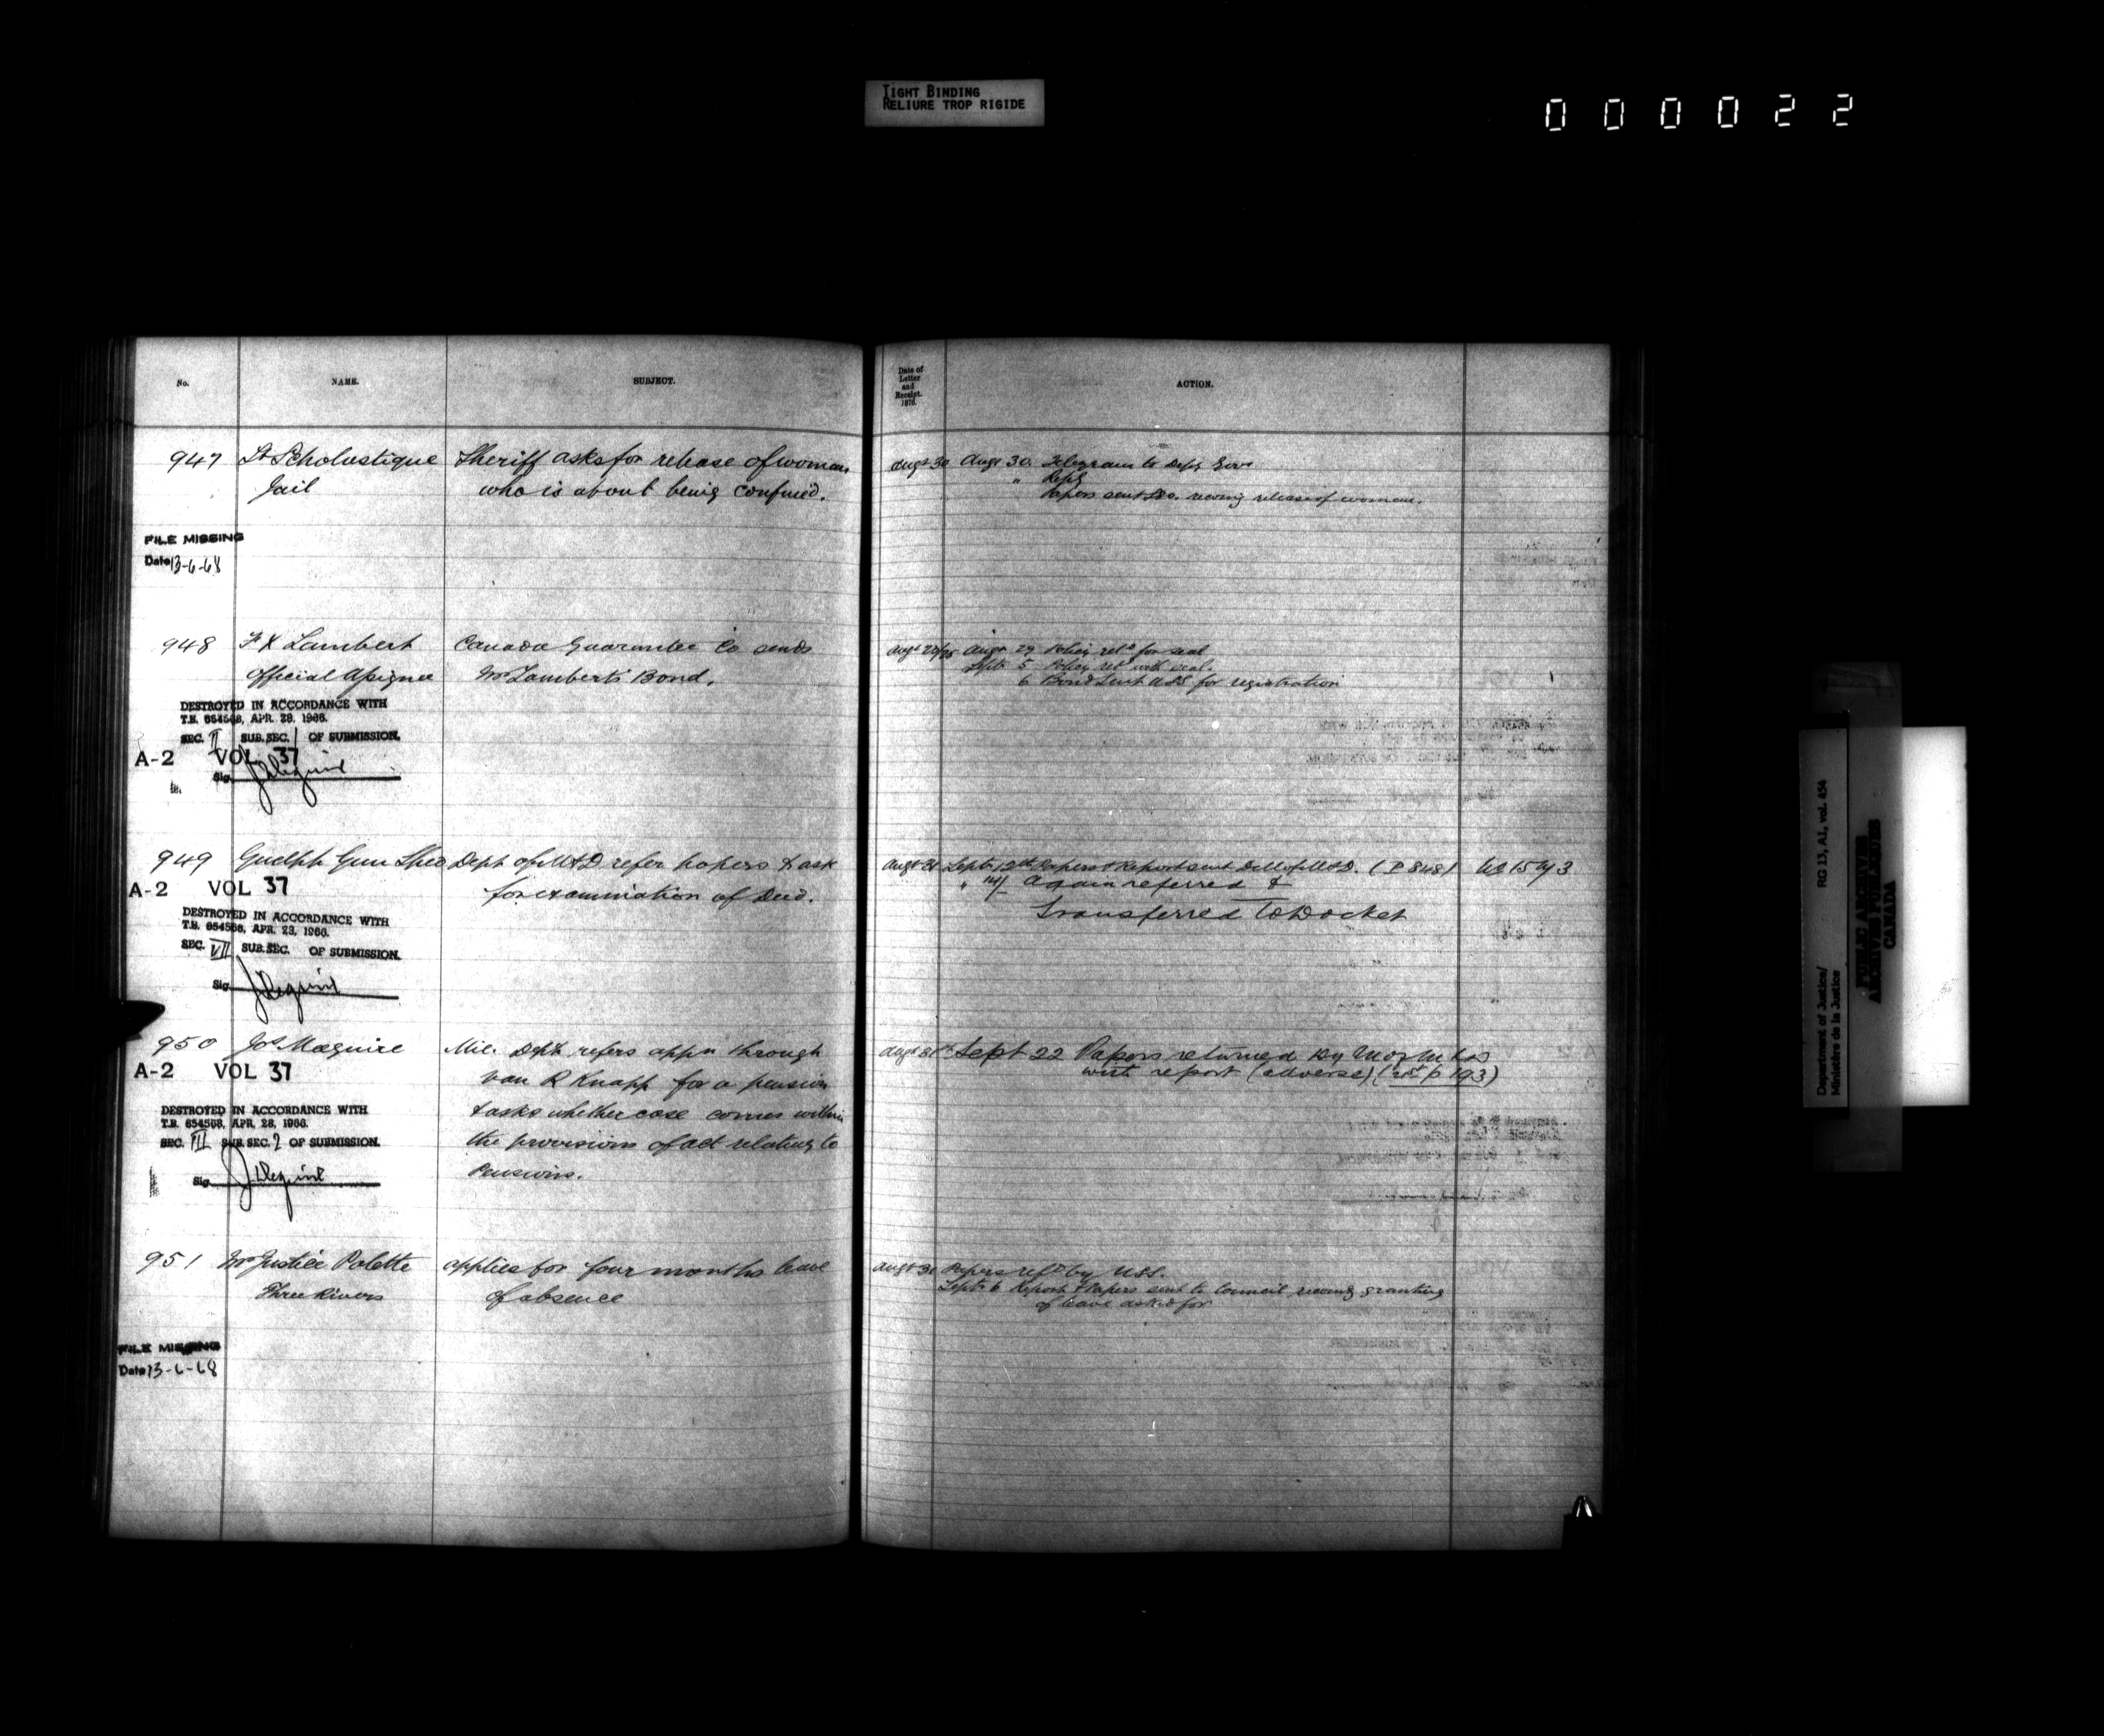 TIGHT BINDING
RELIURE TROP RIGIDE
000022
No.
NAME.
SUBJECT.
Date of
Letter
and
Receipt.
1876.
ACTION.
947
St Scholastique
Jail
Sheriff asks for release of woman
who is about being confined.
Augt 30
Augt 30. Telegram to Depy Govr
" Reply
Papers sent recomg release of woman.
FILE MISSING
Date 13-6-68
948
F X Lambert
Official Assignee
Canada Guarantee Co sends
Mr Lambert's Bond.
Augt 29 Policy retd for seal
Septr 5 Policy retd with seal.
6 Bond sent USS for registration
DESTROYED IN ACCORDANCE WITH
T.B. 654568, APR. 28, 1966.
SEC. II SUB. SEC. 1 OF SUBMISSION.
A-2 VOL 37
Sig.
949
Guelph Gun Shed
Dept of M&D refer papers & ask
for examination of Deed.
Augt 31
Septr 12th Papers & Report sent of M&D. (P 848)
" 14/ Again referred &
Transferred to Docket
A-2 VOL 37
DESTROYED IN ACCORDANCE WITH
T.B. 654568, APR. 28, 1966.
SEC. VII SUB. SEC. OF SUBMISSION.
Sig.
950
Jos Maguire
Mil. Dept refers appn through
Van R Knapp for a pension
& asks whether case comes within
the provisions of act relating to
Pensions.
Augt 31
Sept 22 Papers returned
with report (adverse) (p 193)
A-2 VOL 37
DESTROYED IN ACCORDANCE WITH
T.B. 654568, APR. 28, 1966.
SEC. III SUB. SEC. 2 OF SUBMISSION.
Sig.
951
Mr Justice Polette
Three Rivers
applies for four months leave
of absence
Augt 31
Papers refd by USS.
Septr 6 Report & Papers sent to Council recomg granting
of leave asked for
FILE MISSING
Date 13-6-68
Department of Justice/
Ministère de la Justice
RG 13, A1, vol. 454
PUBLIC ARCHIVES
ARCHIVES PUBLIQUES
CANADA